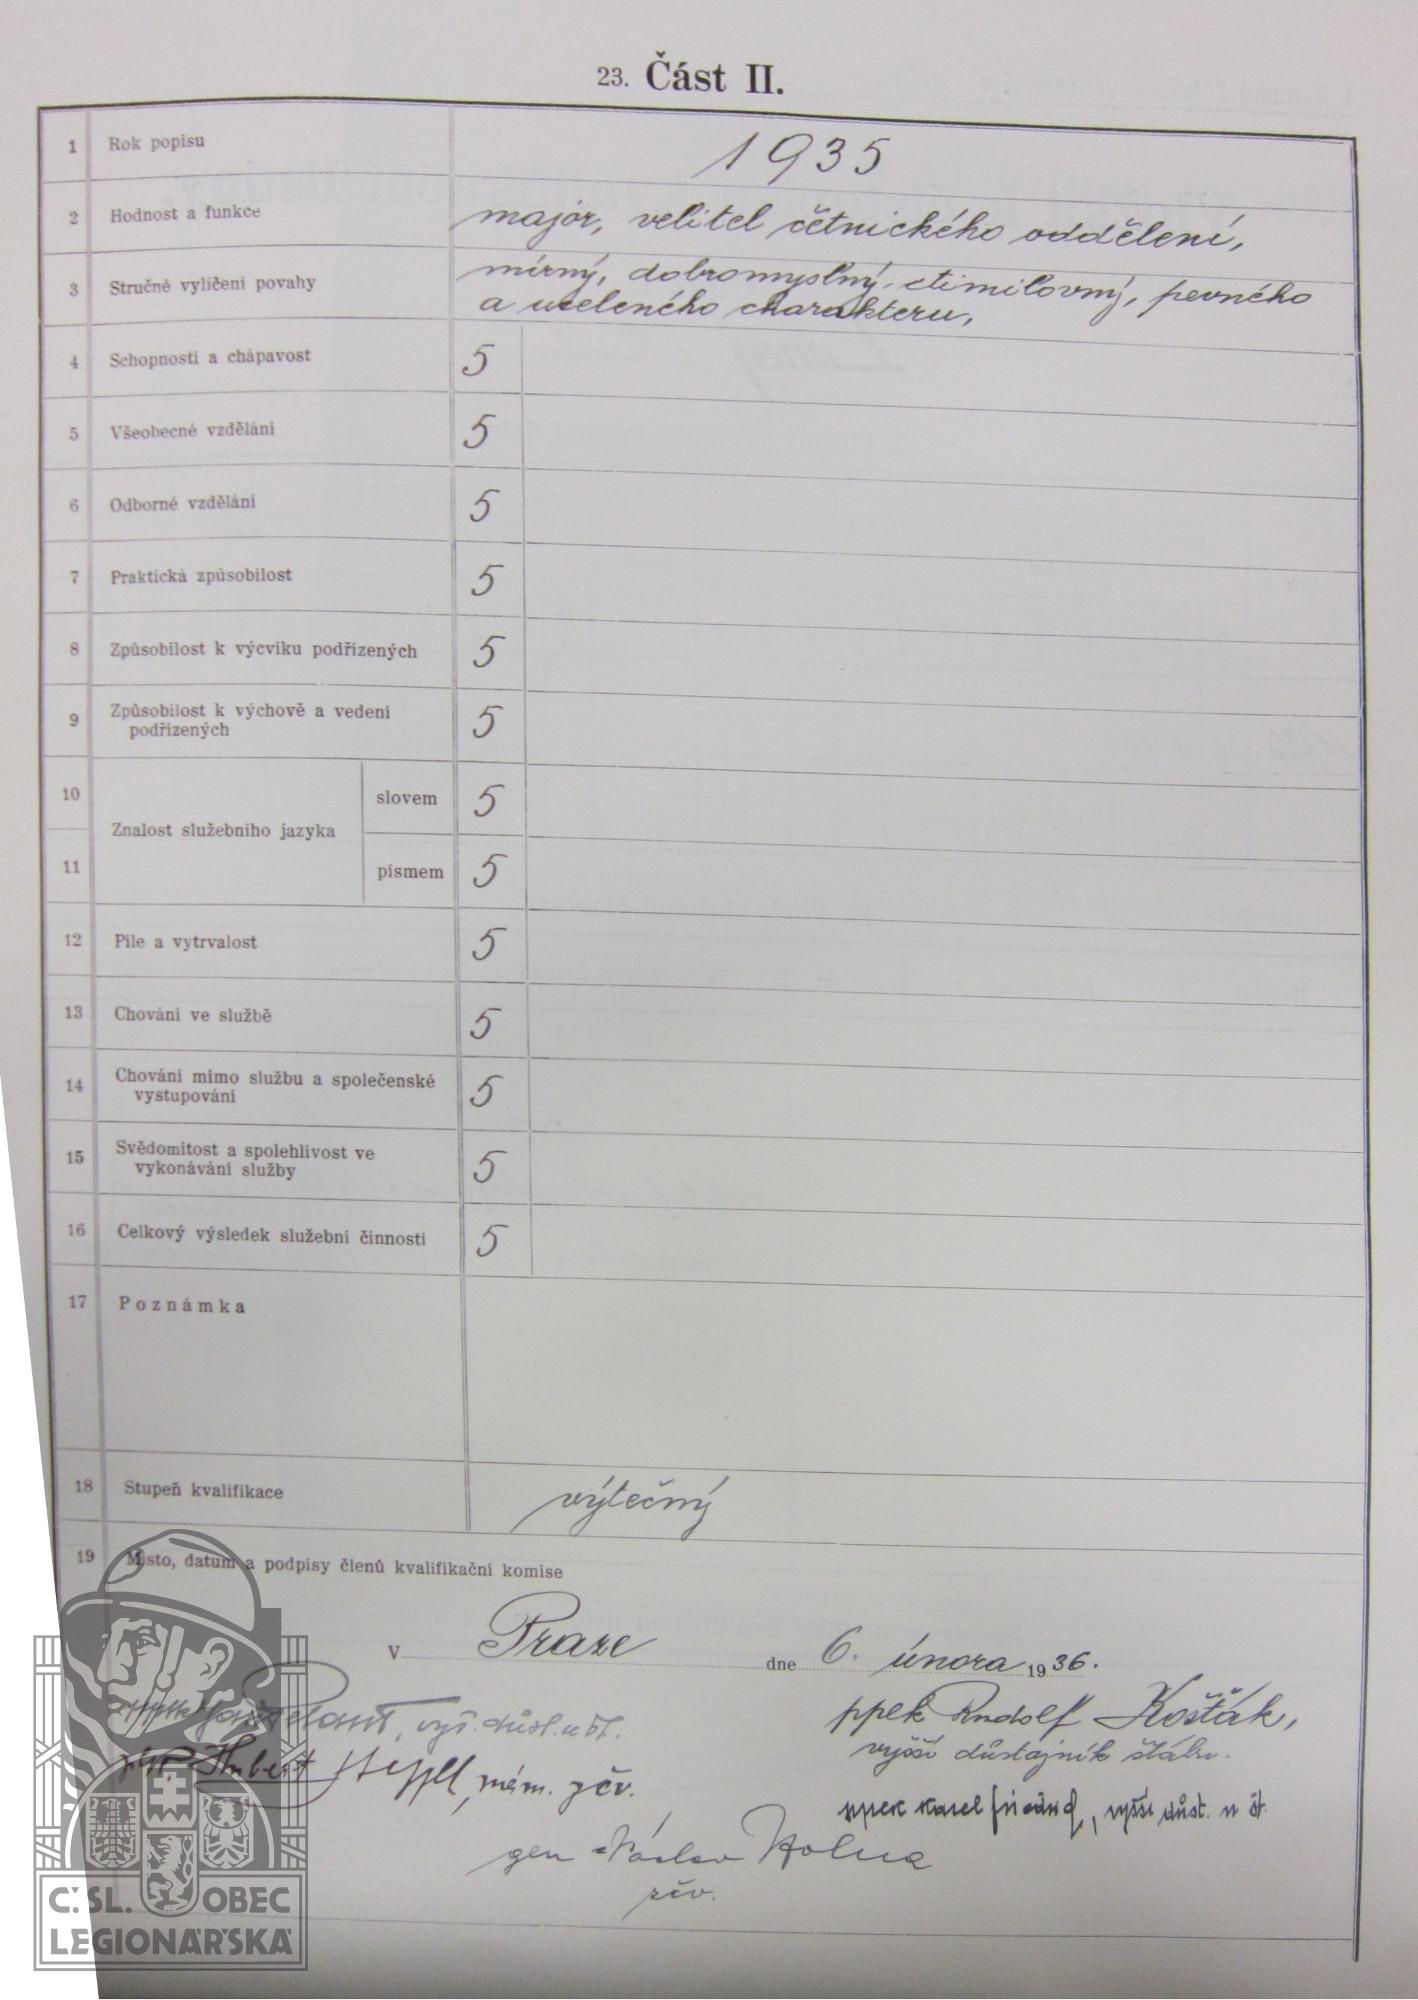 23. Část II.
1 Rok popisu 1935
2 Hodnost a funkce major, velitel četnického oddělení,
3 Stručné vylíčení povahy mírný, dobromyslný, ctimilovný, pevného
a uceleného charakteru,
4 Schopnosti a chápavost 5
5 Všeobecné vzdělání 5
6 Odborné vzdělání 5
7 Praktická způsobilost 5
8 Způsobilost k výcviku podřízených 5
9 Způsobilost k výchově a vedení
podřízených 5
10 slovem 5
Znalost služebního jazyka
11 písmem 5
12 Píle a vytrvalost 5
13 Chování ve službě 5
14 Chování mimo službu a společenské
vystupování 5
15 Svědomitost a spolehlivost ve
vykonávání služby 5
16 Celkový výsledek služební činnosti 5
17 Poznámka
18 Stupeň kvalifikace výtečný
19 Místo, datum a podpisy členů kvalifikační komise
V Praze dne 6. února 1936.
pplk Rudolf Košťák,
vyšší důstojník štábu.
vyš. důst. u št.
Hubert, nám. zčv.
pplk Karel, vyšší důst. u št.
gen Václav Holna
zčv.
ČSL. OBEC
LEGIONÁŘSKÁ